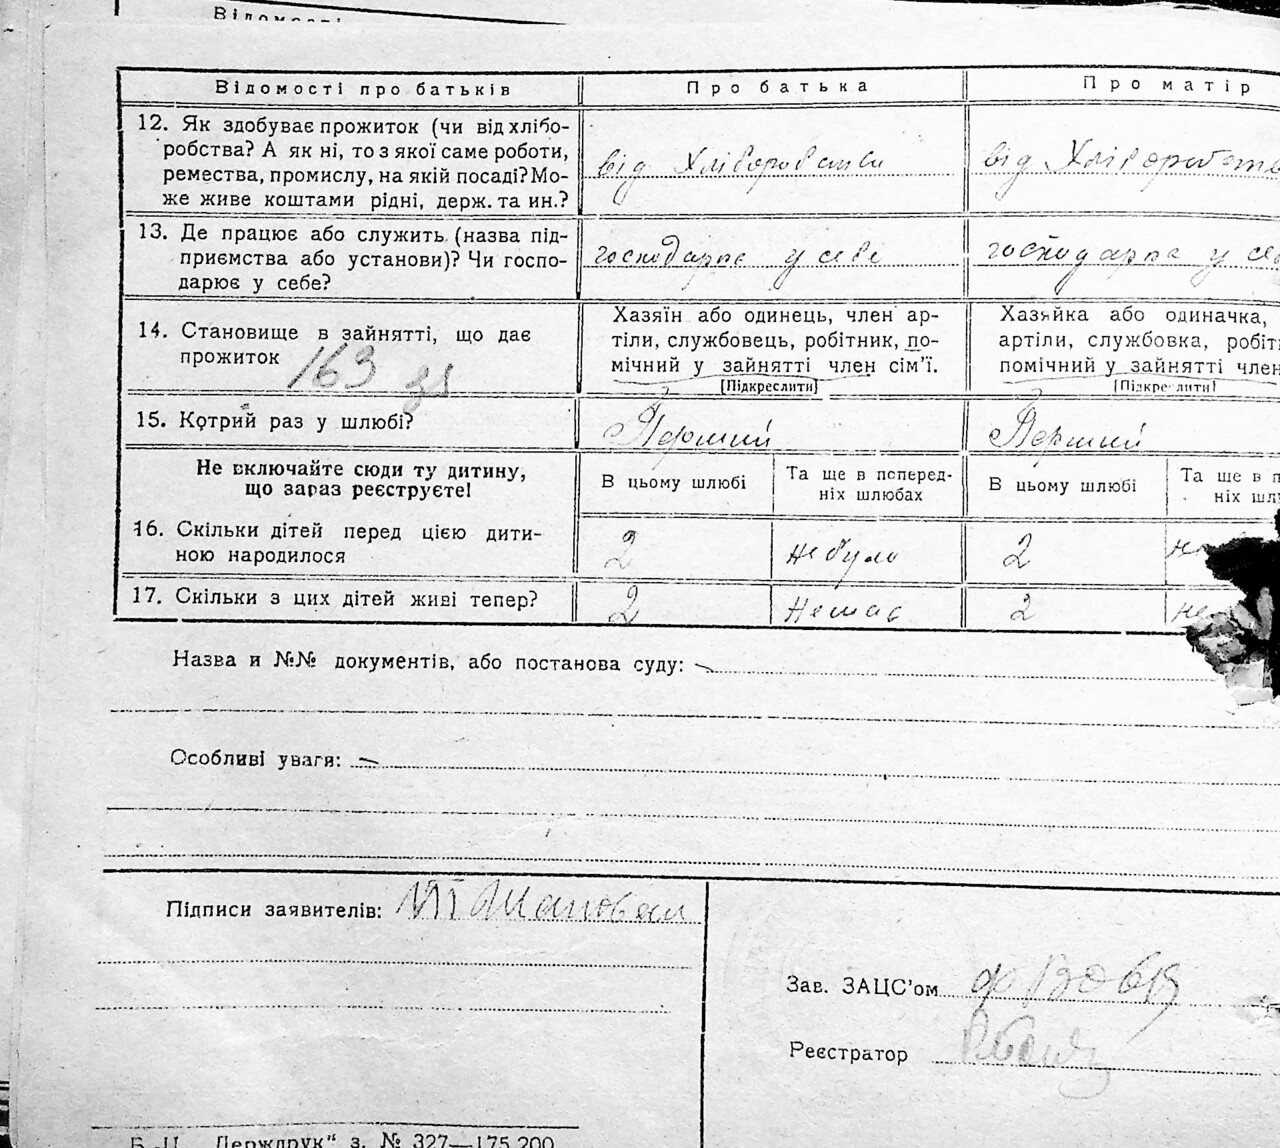 Відомості
Відомості про батьків Про батька Про матір
12. Як здобуває прожиток (чи від хлібо-
робства? А як ні, то з якої саме роботи,
ремества, промислу, на якій посаді? Мо-
же живе коштами рідні, держ. та ин.?
від Хліборобства від Хліборобств
13. Де працює або служить (назва під-
приємства або установи)? Чи госпо-
дарює у себе?
господарює у себе господарює у себе
14. Становище в зайнятті, що дає
прожиток 163
Хазяїн або одинець, член ар-
тіли, службовець, робітник, по-
мічний у зайнятті член сім'ї.
[Підкреслити]
Хазяйка або одиначка,
артіли, службовка, робіт
помічний у зайнятті член
[Підкреслити]
15. Котрий раз у шлюбі? Перший Перший
Не включайте сюди ту дитину,
що зараз реєструєте!
В цьому шлюбі
Та ще в поперед-
ніх шлюбах
В цьому шлюбі
Та ще в п
ніх шлю
16. Скільки дітей перед цією дити-
ною народилося
2 не було 2 не
17. Скільки з цих дітей живі тепер? 2 Немає 2 не
Назва и №№ документів, або постанова суду:
Особливі уваги:
Підписи заявителів: Шаповал
Зав. ЗАЦС'ом
Реєстратор
Б.-Ц. „Держдрук" з. № 327—175.200